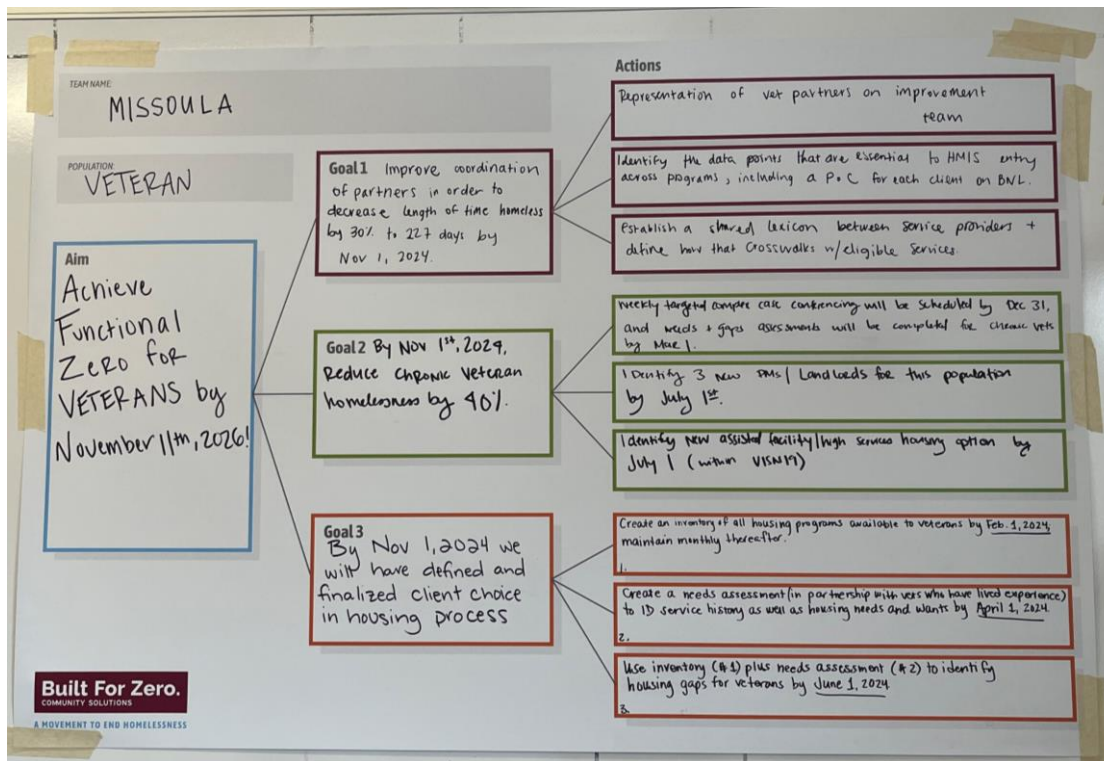 TEAM NAME:
MISSOULA
POPULATION:
VETERAN
Aim
Achieve
Functional
Zero for
VETERANS by
November 11th, 2026!
Goal 1 Improve coordination
of partners in order to
decrease length of time homeless
by 30% to 227 days by
Nov 1, 2024.
Goal 2 By Nov 1st, 2024,
Reduce chronic Veteran
homelessness by 40%.
Goal 3
By Nov 1, 2024 we
will have defined and
finalized client choice
in housing process
Actions
Representation of vet partners on improvement
team
Identify the data points that are essential to HMIS entry
across programs, including a PoC for each client on BNL.
Establish a shared lexicon between service providers +
define how that crosswalks w/eligible services.
Weekly targeted complex case conferencing will be scheduled by Dec 31,
and needs + gaps assessments will be completed for chronic vets
by Mar 1.
Identify 3 new PMs/Landlords for this population
by July 1st.
Identify new assisted facility/high services housing option by
July 1 (within VISN19)
Create an inventory of all housing programs available to veterans by Feb. 1, 2024,
maintain monthly thereafter.
1.
Create a needs assessment (in partnership with vets who have lived experience)
to ID service history as well as housing needs and wants by April 1, 2024.
2.
Use inventory (#1) plus needs assessment (#2) to identify
housing gaps for veterans by June 1, 2024
3.
Built For Zero.
COMMUNITY SOLUTIONS
A MOVEMENT TO END HOMELESSNESS